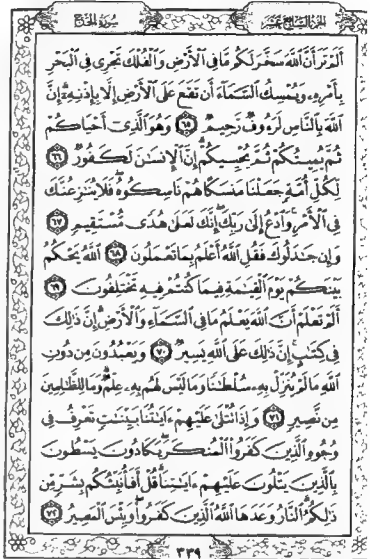 الجزء السابع عشر سورة الحج
أَلَمْ تَرَ أَنَّ ٱللَّهَ سَخَّرَ لَكُم مَّا فِى ٱلْأَرْضِ وَٱلْفُلْكَ تَجْرِى فِى ٱلْبَحْرِ
بِأَمْرِهِۦ وَيُمْسِكُ ٱلسَّمَآءَ أَن تَقَعَ عَلَى ٱلْأَرْضِ إِلَّا بِإِذْنِهِۦٓ ۗ إِنَّ
ٱللَّهَ بِٱلنَّاسِ لَرَءُوفٌ رَّحِيمٌ ٦٥ وَهُوَ ٱلَّذِىٓ أَحْيَاكُمْ
ثُمَّ يُمِيتُكُمْ ثُمَّ يُحْيِيكُمْ ۗ إِنَّ ٱلْإِنسَٰنَ لَكَفُورٌ ٦٦
لِّكُلِّ أُمَّةٍ جَعَلْنَا مَنسَكًا هُمْ نَاسِكُوهُ ۖ فَلَا يُنَٰزِعُنَّكَ
فِى ٱلْأَمْرِ ۚ وَٱدْعُ إِلَىٰ رَبِّكَ ۖ إِنَّكَ لَعَلَىٰ هُدًى مُّسْتَقِيمٍ ٦٧
وَإِن جَٰدَلُوكَ فَقُلِ ٱللَّهُ أَعْلَمُ بِمَا تَعْمَلُونَ ٦٨ ٱللَّهُ يَحْكُمُ
بَيْنَكُمْ يَوْمَ ٱلْقِيَٰمَةِ فِيمَا كُنتُمْ فِيهِ تَخْتَلِفُونَ ٦٩
أَلَمْ تَعْلَمْ أَنَّ ٱللَّهَ يَعْلَمُ مَا فِى ٱلسَّمَآءِ وَٱلْأَرْضِ ۗ إِنَّ ذَٰلِكَ
فِى كِتَٰبٍ ۚ إِنَّ ذَٰلِكَ عَلَى ٱللَّهِ يَسِيرٌ ٧٠ وَيَعْبُدُونَ مِن دُونِ
ٱللَّهِ مَا لَمْ يُنَزِّلْ بِهِۦ سُلْطَٰنًا وَمَا لَيْسَ لَهُم بِهِۦ عِلْمٌ ۗ وَمَا لِلظَّٰلِمِينَ
مِن نَّصِيرٍ ٧١ وَإِذَا تُتْلَىٰ عَلَيْهِمْ ءَايَٰتُنَا بَيِّنَٰتٍ تَعْرِفُ فِى
وُجُوهِ ٱلَّذِينَ كَفَرُوا۟ ٱلْمُنكَرَ ۖ يَكَادُونَ يَسْطُونَ
بِٱلَّذِينَ يَتْلُونَ عَلَيْهِمْ ءَايَٰتِنَا ۗ قُلْ أَفَأُنَبِّئُكُم بِشَرٍّ مِّن
ذَٰلِكُمُ ۗ ٱلنَّارُ وَعَدَهَا ٱللَّهُ ٱلَّذِينَ كَفَرُوا۟ ۖ وَبِئْسَ ٱلْمَصِيرُ ٧٢
٣٣٩